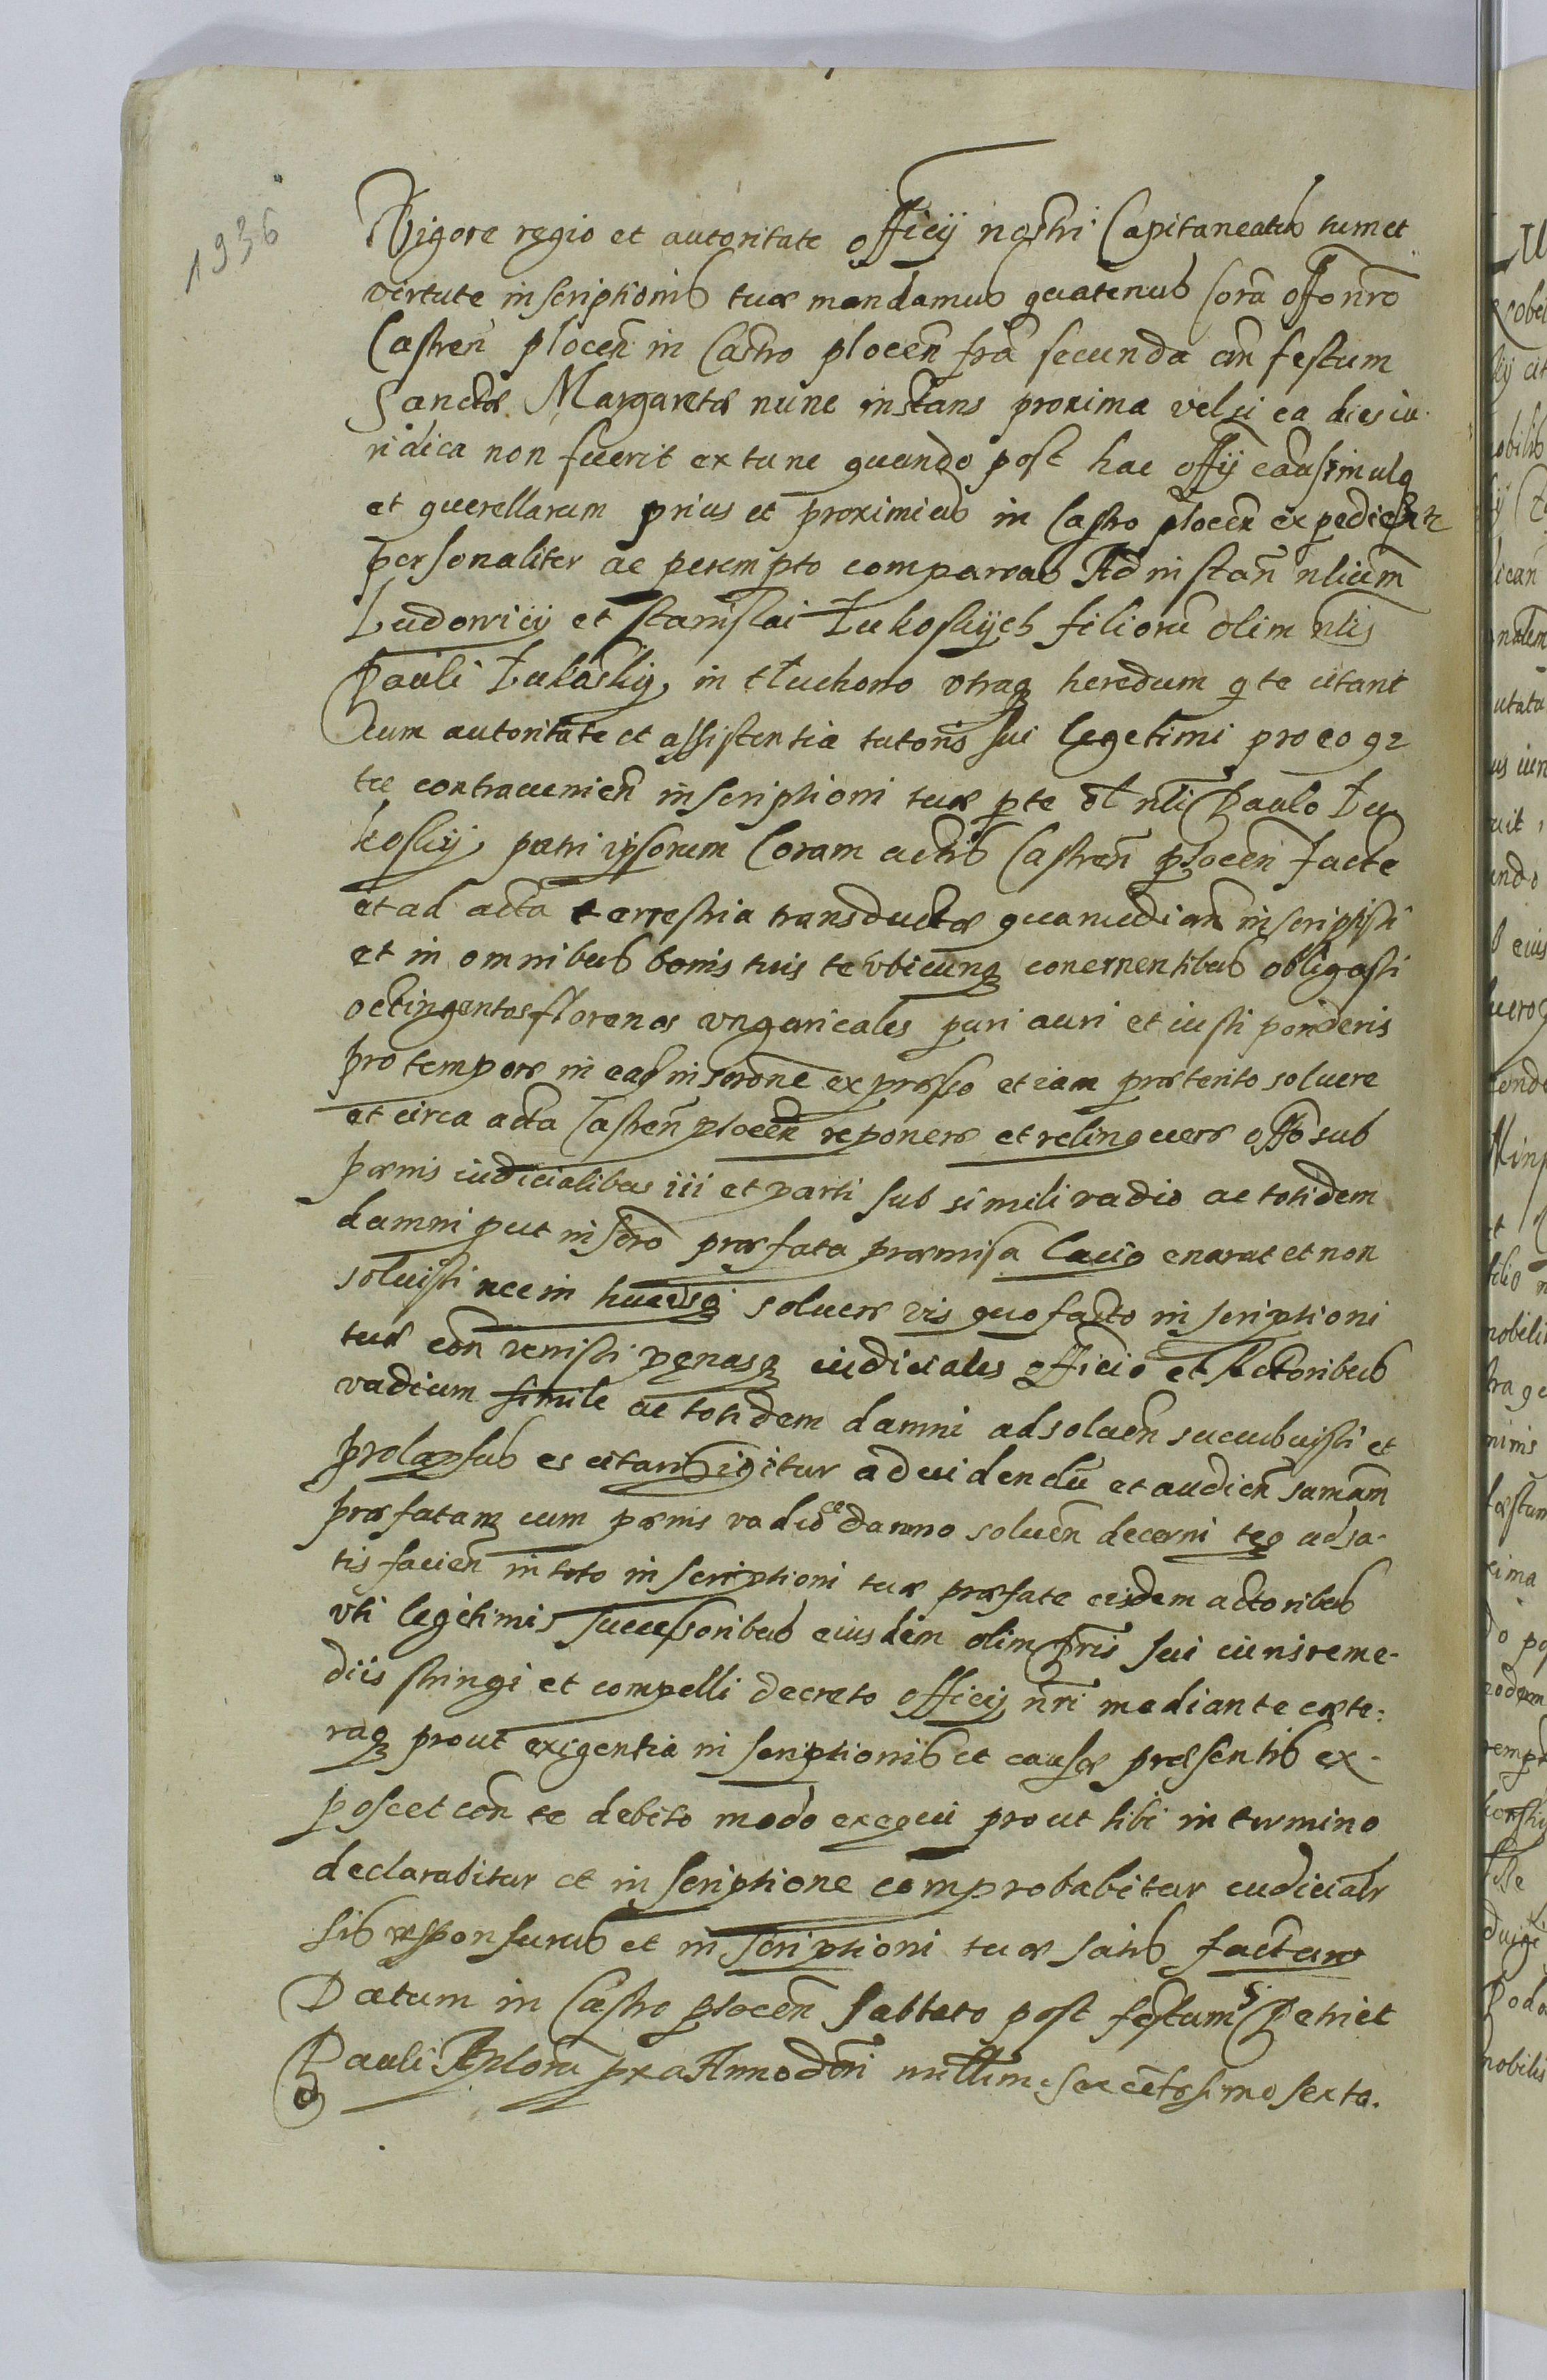 1936
Vigore regio et autoritate officij nostri Capitaneatus tum et
virtute inscriptionis tuæ mandamus quatenus Corã offo nrõ
Castreñ plocen̄ in Castro plocen̄ frã secunda an̄ festum
Sanctæ Margaretæ nunc instans proxima vel si ea dies iu-
ridica non fuerit ex tunc quando post hac offij
et querellarum prius et proximius in Castro plocen̄
personaliter ac perempto compareas Ad instan̄ nlium
Ludovicij et Stanislai Łukoskijch filiorũ olim nlis
Pauli Łukoskij in tłuchowo heredum q te citant
Cum autoritate et assistentia tutoris sui legetimi pro eo qz
tu contravenien̄ inscriptioni tuæ p te ol nli Paulo Łu
koskij patri ipsorum Coram actis Castren̄ plocen̄ factæ
et ad acta terrestria transductæ qua inscripsisti
et in omnibus bonis tuis te vbicunq concernentibus obligasti
octingentos florenos vngaricales puri auri et iusti ponderis
pro tempore in ead inscrone expresso etiam præterito soluere
et circa acta Castren̄ plocen̄ reponere et relinquere offo sub
pænis iudicialibus iii et parti sub simili vadio ac totidem
damni put inscro præfata præmisa Lacio enarat et non
soluisti nec in hucusq soluere vis quo facto inscriptioni
tuæ con̄ venisti pęnasq iudiciales officio et Actoribus
vadium simile ac totidem damni ad soluen̄ succubuisti et
prolapsus es citaris igitur ad uidendũ et audien̄ samam̄
præfatam cum pænis vadio ac damno soluen̄ decerni teq ad sa-
tis facien̄ in toto inscriptioni tuæ præfate eisdem actoribus
vti legitimis Successoribus eiusdem olim pris sui iuris reme-
diis stringi et compelli decreto officij nri mediante cæte-
raq prout exigentia inscriptionis et causæ præsentis ex-
poscet con̄ te debito modo exequi prout tibi in termino
declarabitur et inscriptione comprobabitur iudicialr
sis responsurus et inscriptioni tuæ satis facturus
Datum in Castro plocen̄ Sabbato post festum S. Petri et
Pauli Aplorũ pxa Anno dni millimo sexcetesimo sexto.